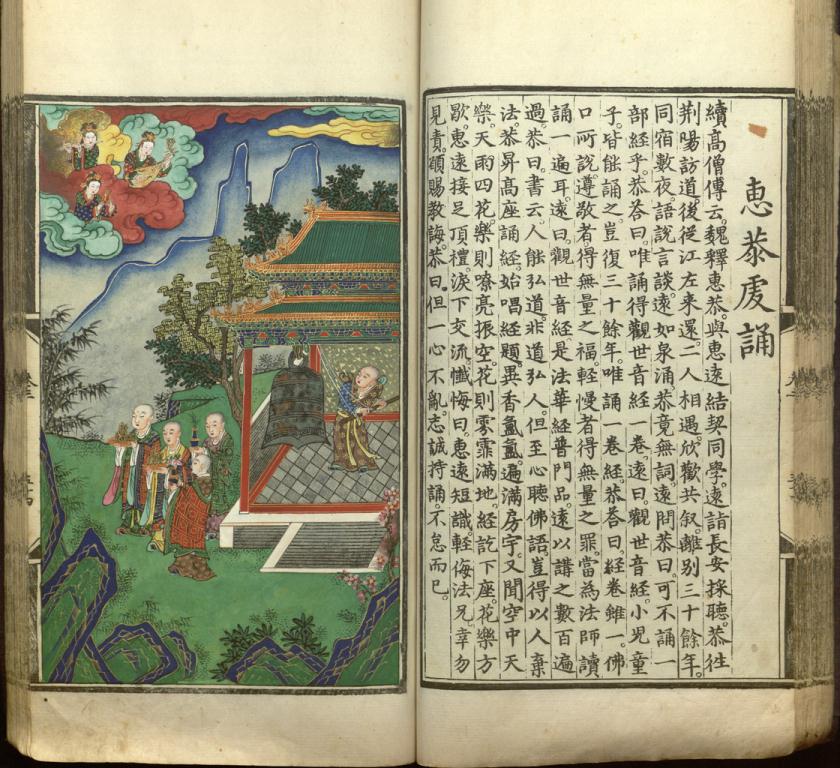 惠恭虔誦
續高僧傳云。魏釋惠恭。與惠遠結契同學。遠詣長安採聽。恭往
荆陽訪道。後從江左來還。二人相遇。欣歡共叙。離別三十餘年。
同宿數夜。語說言談。遠如泉涌。恭竟無詞。遠問恭曰。可不誦一
部經乎。恭答曰。唯誦得觀世音經一卷。遠曰。觀世音經。小児童
子。皆能誦之。豈復三十餘年。唯誦一卷經。恭答曰。經卷雖一。佛
口所說。遵敬者得無量之福。輕慢者得無量之罪。當為法師讀
誦一遍耳。遠曰。觀世音經。是法華經普門品。遠以講之數百遍
過。恭曰。書云。人能弘道。非道弘人。但至心聽佛語。豈得以人棄
法。恭昇高座誦經。始唱經題。異香氳氳。遍滿房宇。又聞空中天
樂。天雨四花。樂則嘹亮振空。花則雰霏滿地。經訖下座。花樂方
歇。惠遠接足頂禮。淚下交流。懺悔曰。惠遠短識。輕侮法兄。幸勿
見責。願賜教誨。恭曰。但一心不亂。志誠持誦。不怠而已。